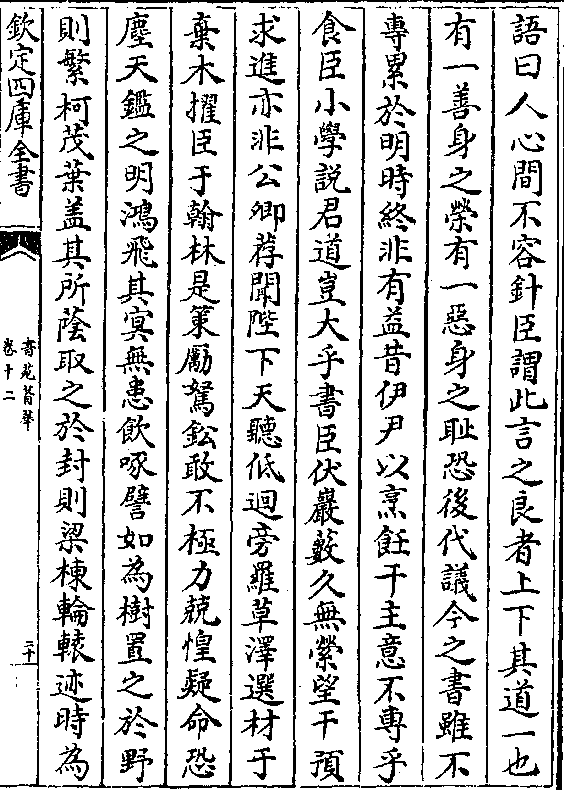 語曰人心間不容針臣謂此言之良者上下其道一也
有一善身之榮有一惡身之耻恐後代議今之書雖不
專累於明時終非有益昔伊尹以烹飪干主意不専乎
食臣小學說君道豈大乎書臣伏巖藪久無縈望干預
求進亦非公卿荐聞陛下天聽低迴旁羅草澤選材于
棄木擢臣于翰林是策勵駑鈆敢不極力兢惶疑命恐
塵天鑑之明鴻飛其㝠無患飲啄譬如為樹置之於野
則繁柯茂葉盖其所蔭取之於封則梁棟輪轅迹時為
欽定四庫全書
書苑菁華
卷十二
二十